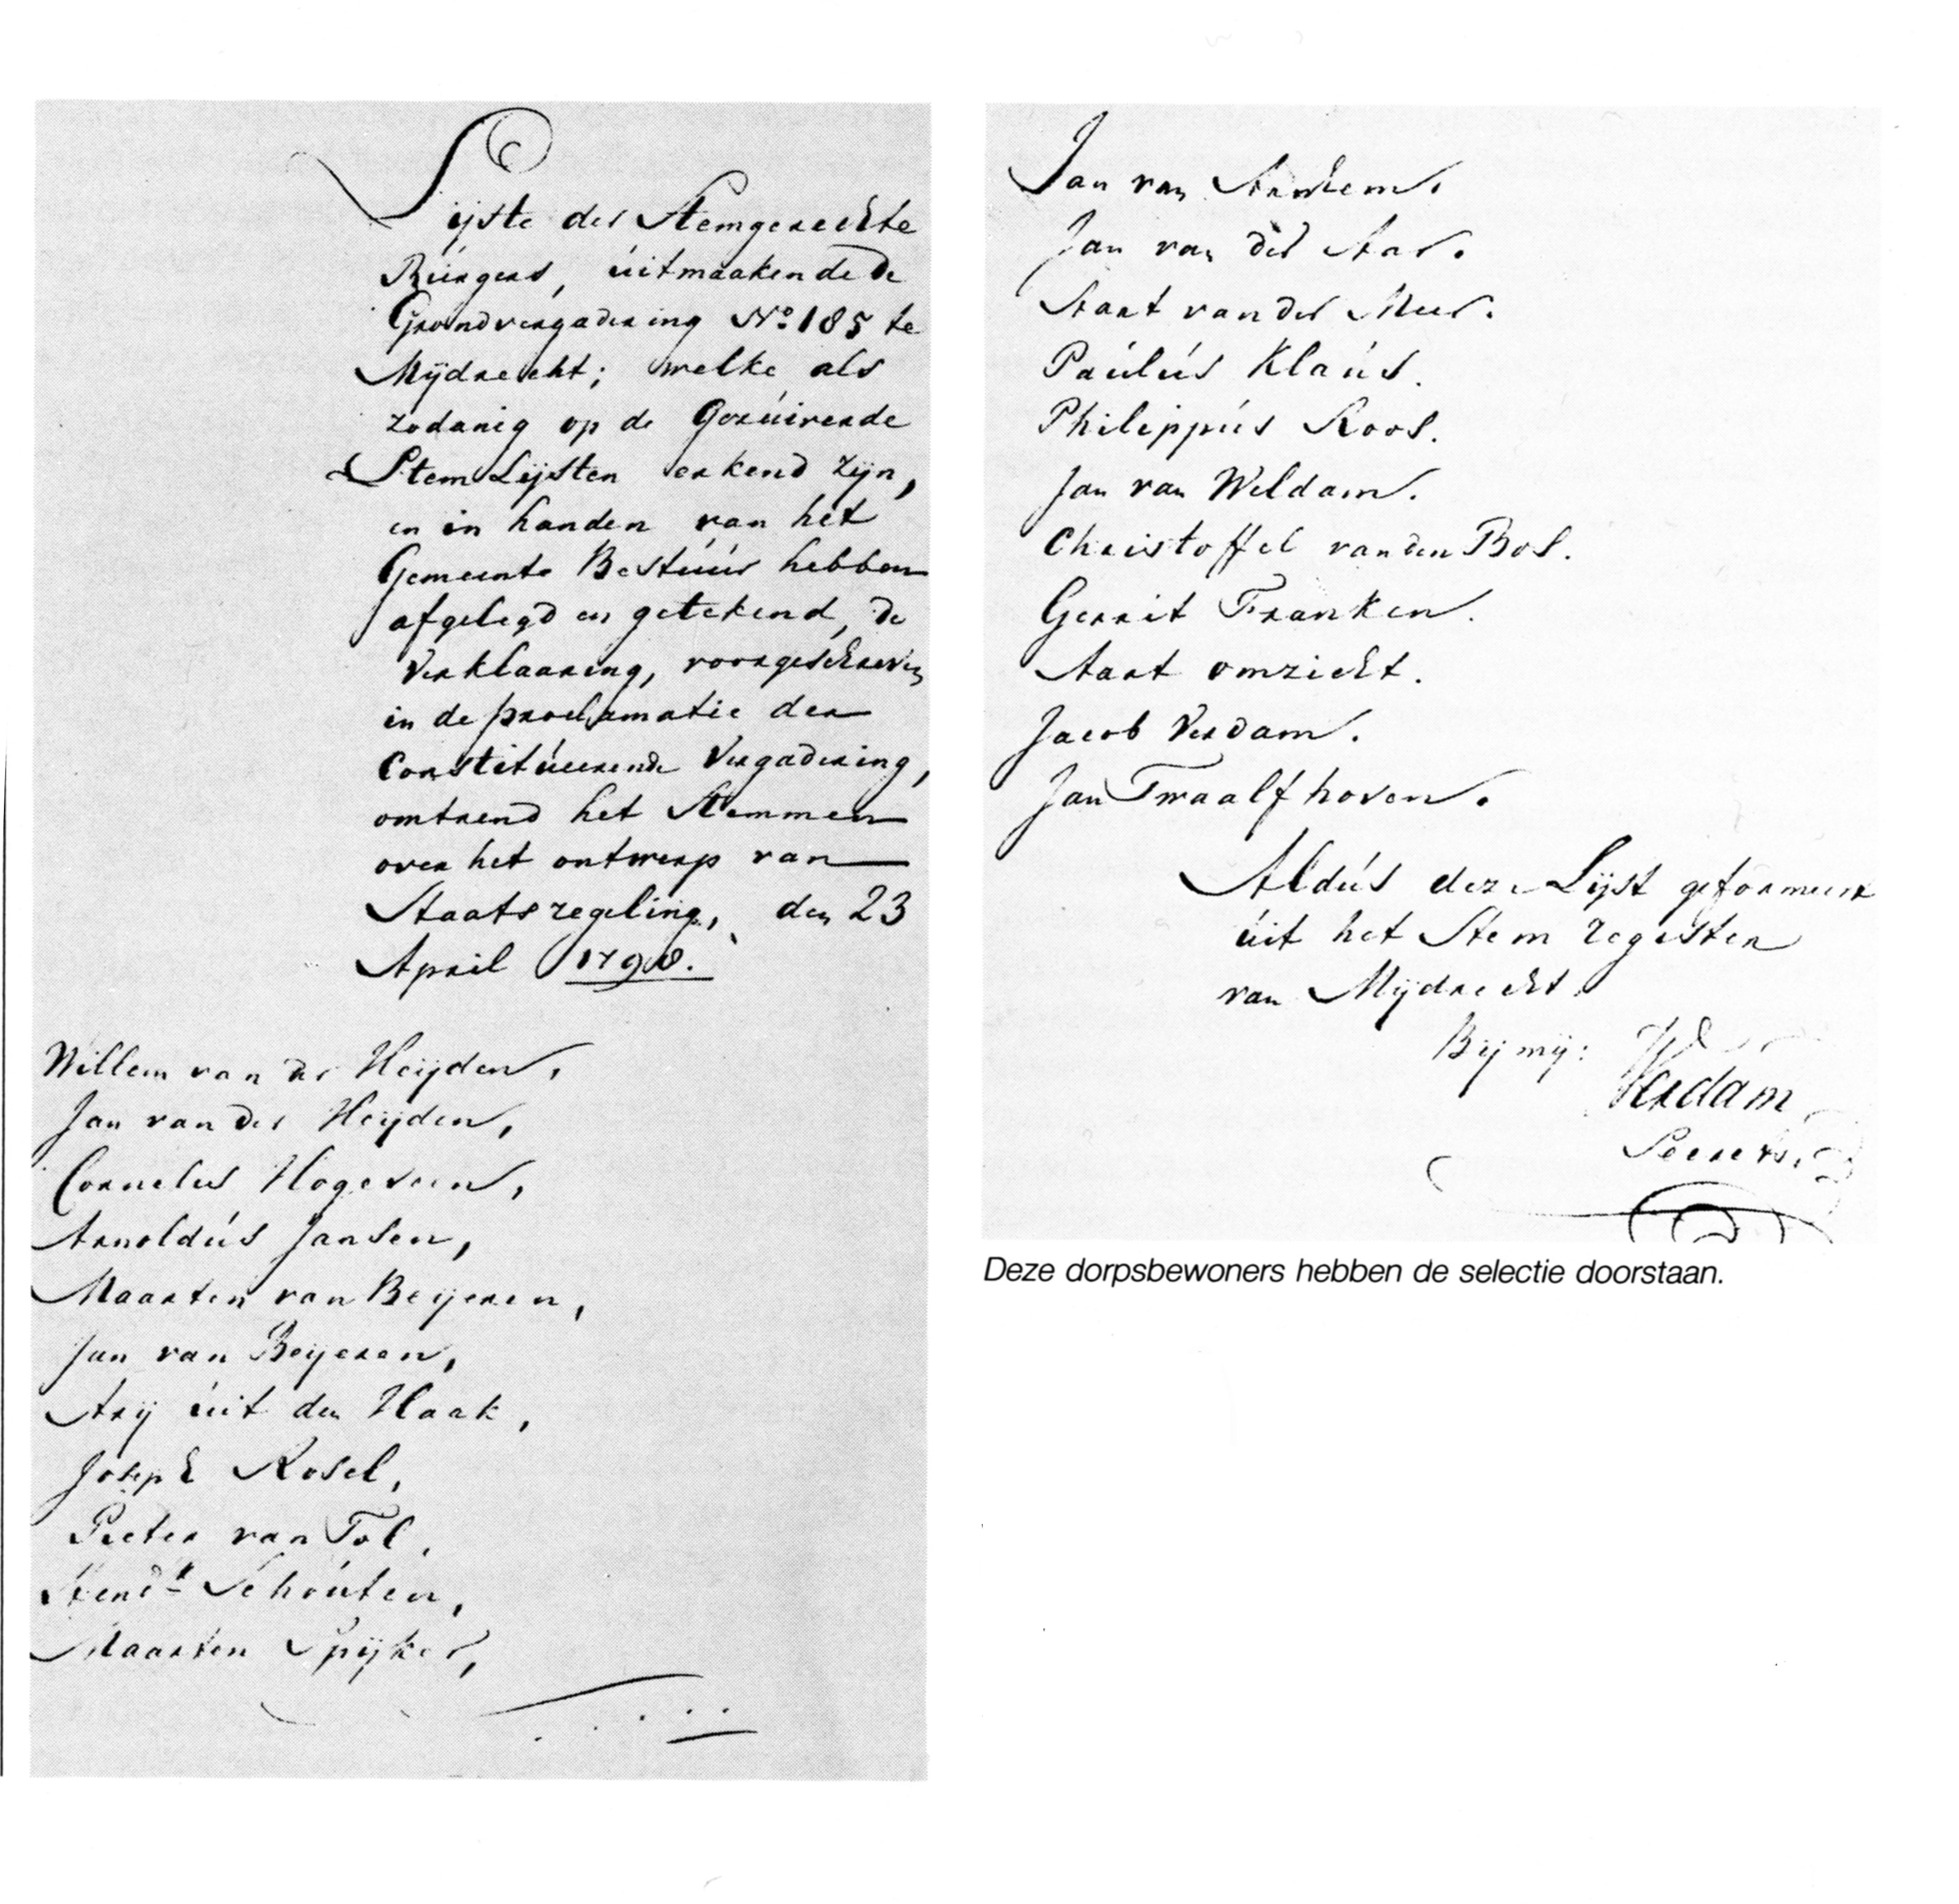 Lijste der Stemgerechte
Burgers, uitmaakende de
Grondvergadering No. 185 te
Mijdrecht; welke als
zodanig op de Gezuiverde
Stem Lijsten erkend zijn,
en in handen van het
Gemeente Bestuur hebben
afgelegd en getekend, de
Verklaaring, voorgeschreven
in de proclamatie der
Constitueerende Vergadering,
omtrend het Stemmen
over het ontwerp van
Staatsregeling, den 23
April 1798.
Willem van der Heijden,
Jan van der Heijden,
Cornelus Hogeveen,
Arnoldus Jansen,
Maarten van Beijeren,
Jan van Beijeren,
Arij uit den Haak,
Joseph Rosel,
Pieter van Tol,
Hendk Schouten,
Maarten Spijker,
Jan van Arnhem.
Jan van der Aar.
Aart van der Meer.
Paulus Klaus.
Philippus Roos.
Jan van Weldam.
Christoffel van den Bos.
Gerrit Franken.
Aart omzicht.
Jacob Verdam.
Jan Twaalfhoven.
Aldus deze Lijst geformeert
uit het Stem register
van Mijdrecht.
Bij mij:
Verdam
Secrets.
Deze dorpsbewoners hebben de selectie doorstaan.